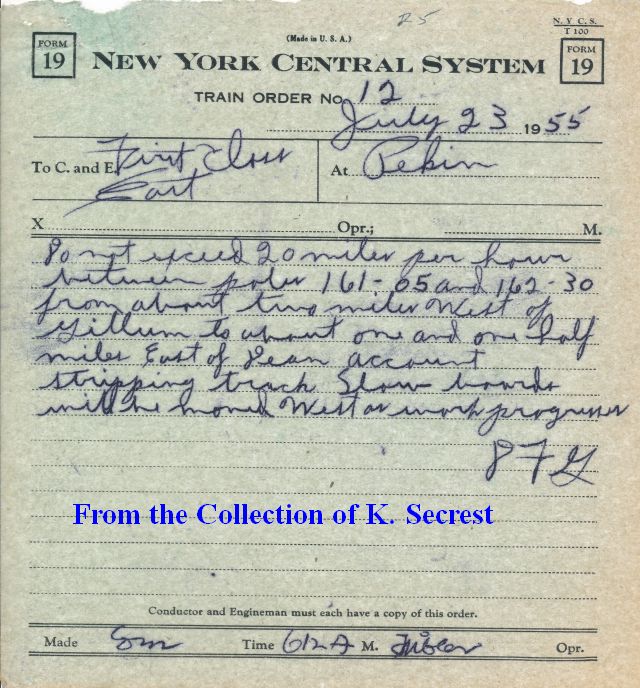 25
N. Y. C. S.
T 100
(Made in U. S. A.)
FORM 19
NEW YORK CENTRAL SYSTEM
FORM 19
TRAIN ORDER No. 12
July 23 1955
To C. and E. First Class
East
At Pekin
X Opr.; M.
Do not exceed 20 miles per hour
between poles 161-05 and 162-30
from about two miles West of
Gillum to about one and one half
miles East of Dean account
stripping track Slow boards
will be moved West as work progresses
From the Collection of K. Secrest
Conductor and Engineman must each have a copy of this order.
Made Com Time 612 A M. Opr.